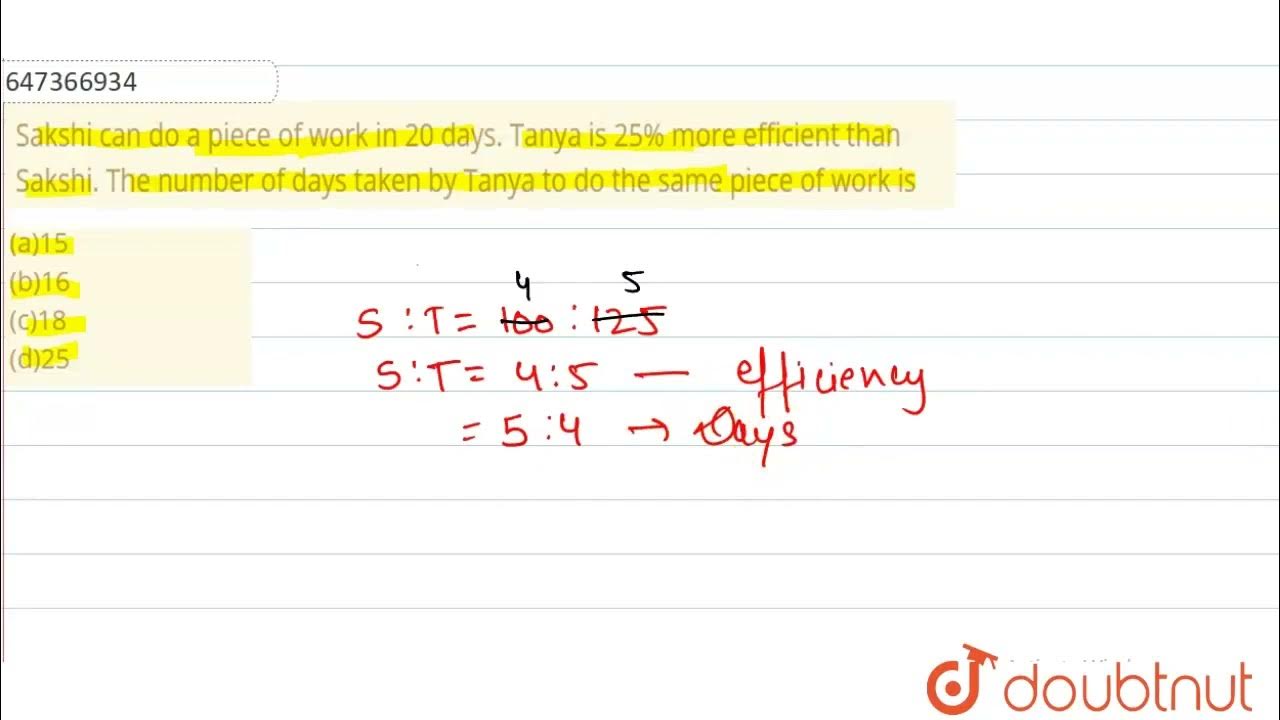 647366934
Sakshi can do a piece of work in 20 days. Tanya is 25% more efficient than
Sakshi. The number of days taken by Tanya to do the same piece of work is
(a)15
(b)16
(c)18
(d)25
4 5
S : T = 100 : 125
S : T = 4 : 5 — efficiency
= 5 : 4 → Days
doubtnut